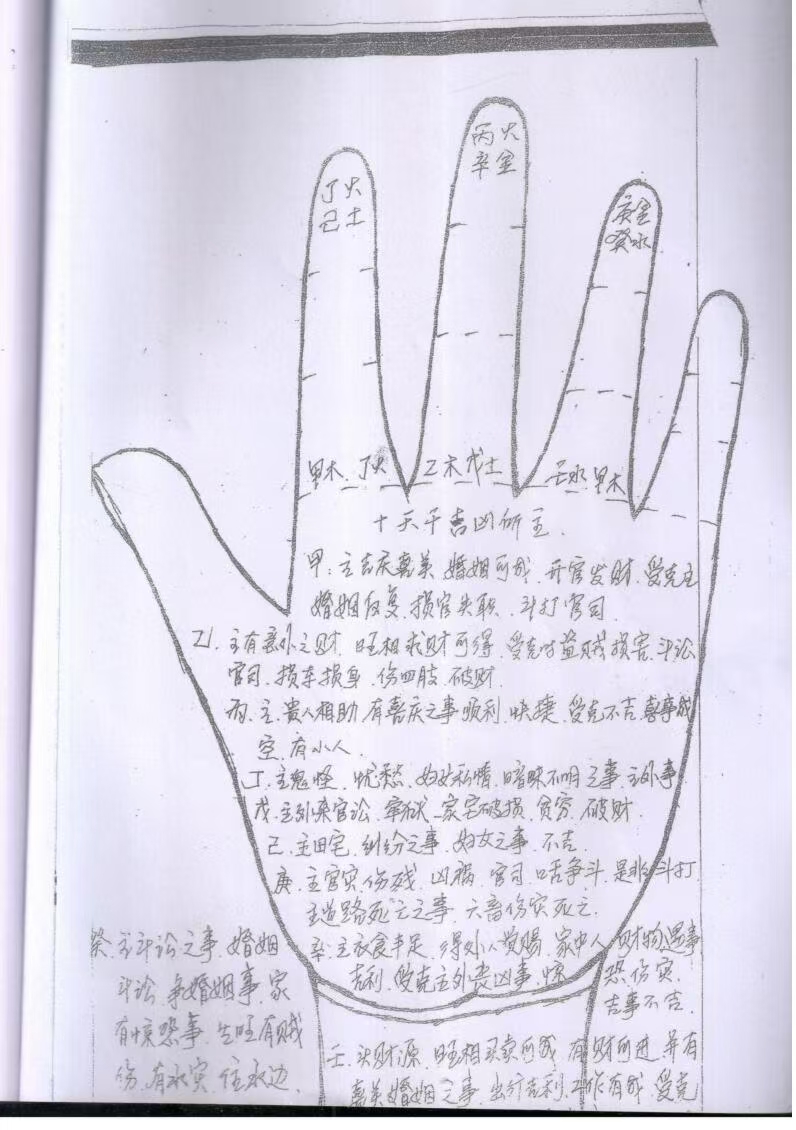 丙火
辛金
丁火
己土
庚金
癸水
甲木 丁火 乙木戊土 壬水 甲木
十天干吉凶所主.
甲:主吉庆嘉美 婚姻可成.开官发财.受克主
婚姻反复.损官失职.斗打官司.
乙.主有意外之财.旺相求财可得.受克 盗贼损害.斗讼
官司.损车损身.伤四肢.破财.
丙.主.贵人相助有喜庆之事顺利.快捷.受克不吉.喜事成
空.有小人.
丁.主鬼怪.忧愁.妇女私情.暗昧不明之事.主外事.
戊.主外来官讼.牢狱.家宅破损.贫穷.破财.
己.主田宅.纠纷之事.妇女之事.不吉.
庚.主官灾.伤残.凶祸.官司.口舌争斗.是非斗打.
主道路死亡之事.六畜伤灾死亡.
辛.主衣食丰足.得外人赏赐.家中人 财物遇事
吉利.受克主外丧凶事.惊 恐伤灾.
吉事不吉.
癸.主斗讼之事.婚姻
斗讼.争婚姻事.家
有惊恐事.生旺有贼
伤.有水灾.住水边.
壬.头财源.旺相买卖可成.有财可进.并有
嘉美婚姻之事.出行吉利.工作有成.受克